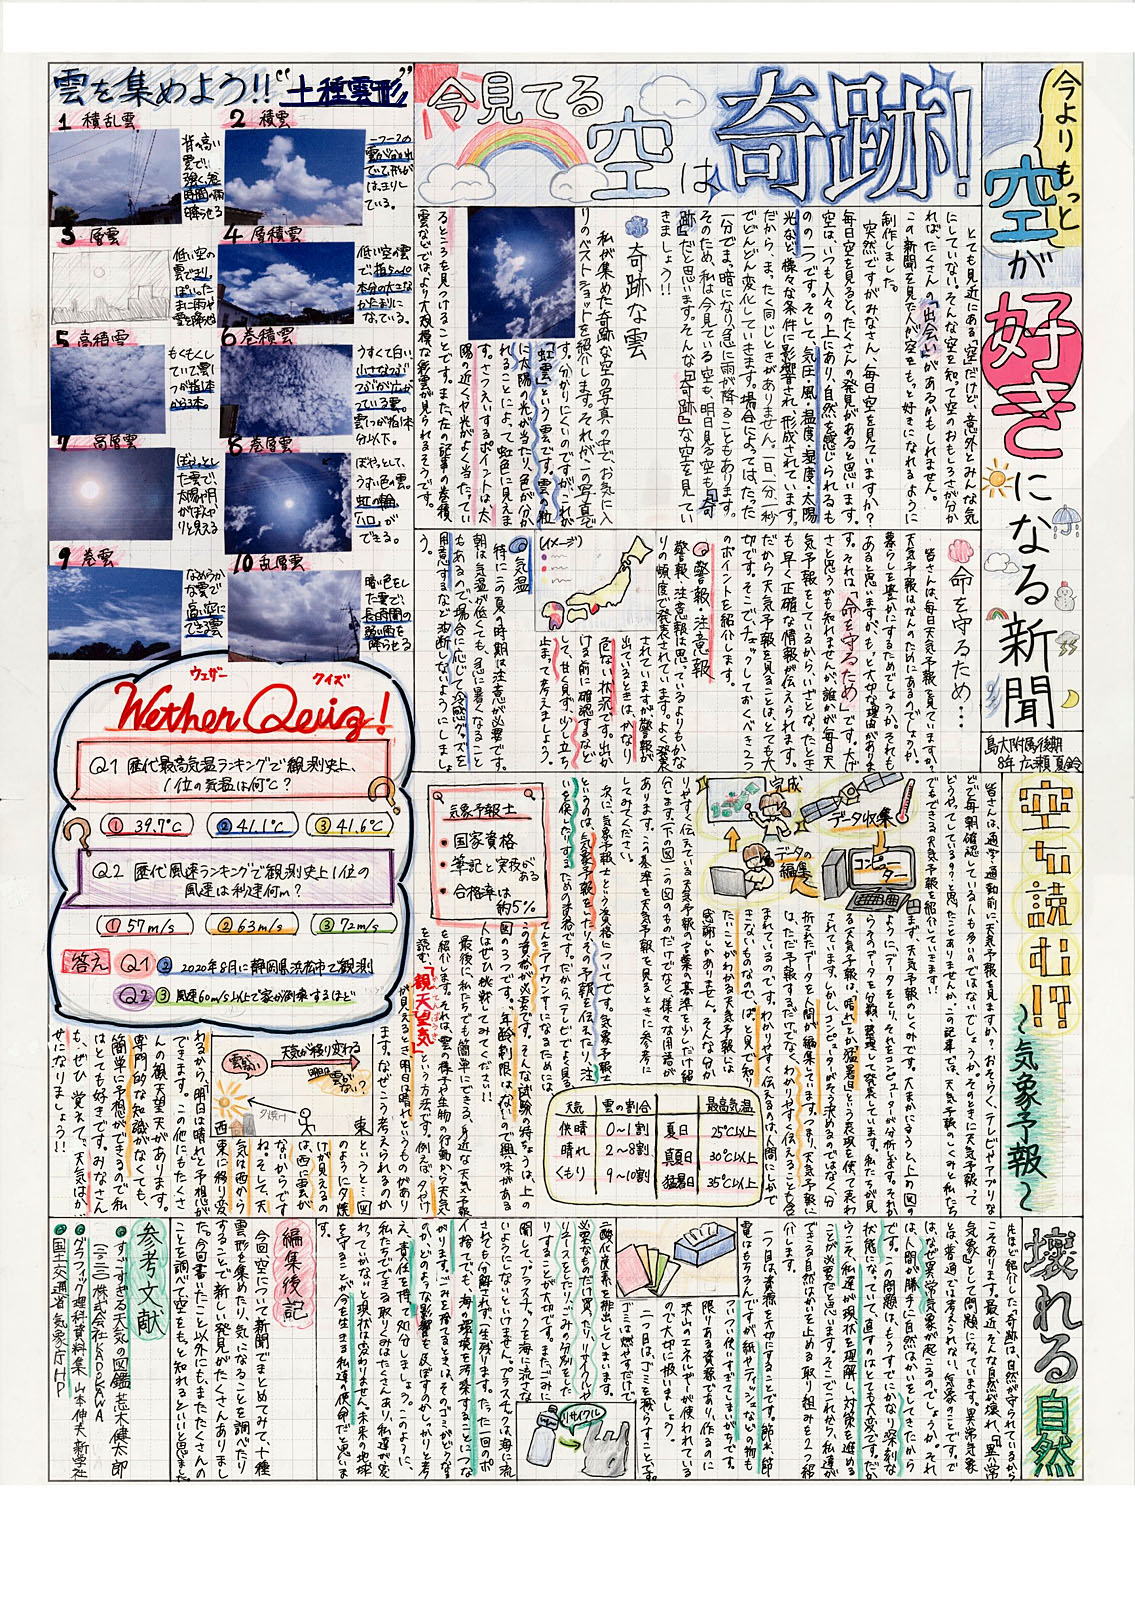 今よりもっと
空が好きになる新聞
島大附属後期
8年 広瀬夏鈴
とても身近にある「空」だけど、意外とみんな気
にしていない。そんな空を知って空のおもしろさが分か
れば、たくさんの「出会い」があるかもしれません。
この新聞を見た人が空をもっと好きになれるように
制作しました。
今見てる空は奇跡!
突然ですがみなさん、毎日空を見ていますか?
毎日空を見ると、たくさんの発見があると思います。
空はいつも人々の上にあり、自然を感じられるも
のの一つです。そして、気圧・風・温度・湿度・太陽
光など、様々な条件に影響され、形成されています。
だから、まったく同じときがありません。一日一分一秒
でどんどん変化していきます。場合によっては、たった
一分でまっ暗になり急に雨が降ることもあります。
そのため、私は今見ている空も、明日見る空も「奇
跡」だと思います。そんな「奇跡」な空を見てい
きましょう!!
奇跡な雲
私が集めた奇跡な空の写真の中で、お気に入
りのベストショットを紹介します。それが、一の写真で
す。分かりにくいのですが、これが
「虹雲」という雲です。雲の粒
に太陽の光が当たり、色が分か
れることによって、虹色に見えま
す。さつえいするポイントは、太
陽の近くや光がよく当たってい
るところを見つけることです。また、左の記事の巻積
雲などではより大規模な彩雲が見られるそうです。
雲を集めよう!!“十種雲形”
1 積乱雲
背の高い
雲で!
強く短
時間の雨
降らせる
2 積雲
一つ一つの
雲がはなれ
ていて、形が
はっきりし
ている。
3 層雲
低い空の
雲できり
ぽい。た
まに雨や
雪を降らせる
4 層積雲
低い空の雲
で指5〜10
本分の大きな
かたまりに
なっている。
5 高積雲
もくもくし
ていて雲1
つが指1本
から3本。
6 巻積雲
うすくて白い。
小さなつぶ
つぶが広が
っている雲。
雲1つが指1本
分以下。
7 高層雲
ぼやっとし
た雲で、
太陽や月
がぼんや
りと見える
8 巻層雲
ぼやっとして、
うすい色の雲。
虹の輪、
「ハロ」が
できる。
9 巻雲
なめらか
な雲で
高い空に
できる雲
10 乱層雲
暗い色をし
た雲で、
長時間の
弱い雨を
降らせる
命を守るため…
皆さんは、毎日天気予報を見ていますか。
天気予報はなんのためにあるのでしょうか。
暮らしを豊かにするためでしょうか。それも
あると思いますが、もっと大切な理由がありま
す。それは、「命を守るため」です。大げ
さと思うかも知れませんが、誰かが毎日天
気予報をしているから、いざとなったとき
も早く正確な情報が伝えられます。
だから天気予報を見ることはとても大
切です。そこで、チェックしておくべき三つ
のポイントを紹介します。
①警報・注意報
警報・注意報は思っているよりもかな
りの頻度で発表されています。よく発表
されていますが警報が
出ているときは、かなり
危ない状況です。出か
ける前に確認するなど
して、甘く見ず、少し立ち
止まって考えましょう。
イメージ)
②気温
特にこの夏の時期は注意が必要です。
朝は気温が低くても、急に暑くなること
もあるので、場合に応じて冷感グッズを
用意するなど油断しないようにしましょ
う。
ウェザー クイズ
Wether Qeuiz!
Q1 歴代最高気温ランキングで観測史上、
1位の気温は何℃?
① 39.7℃ ② 41.1℃ ③ 41.6℃
Q2 歴代風速ランキングで観測史上1位の
風速は秒速何m?
① 57m/s ② 63m/s ③ 72m/s
答え Q1 ② 2020年8月に静岡県浜松市で観測
Q2 ③ 風速60m/s以上で家が倒壊するほど
空も読む!?
〜気象予報〜
皆さんは、通学・通勤前に、天気予報を見ますか?おそらく、テレビやアプリな
どで毎朝確認している人も多いのではないでしょうか。そのときに天気予報って
どうやってしている??と思ったことありませんか。この記事では、天気予報のしくみと、私た
ちでもできる天気予報を紹介していきます!!
まず、天気予報のしくみです。大まかに言うと、上の図の
ように、データをとり、それをコンピューターが分析します。それか
ら、そのデータを分類、整理して発表しています。私たちが見
る天気予報は、「晴れ」とか「猛暑日」という表現を使って表わ
されています。しかし、コンピューターがそう決めるのではなく、分
析されたデータを人間が編集しています。つまり、天気予報に
は、ただ予報するだけでなく、わかりやすく伝えることも含
まれているのです。わかりやすく伝えるのは、人間にしかで
きないものなので、ぱっと見で知り
たいことがわかる天気予報には
感謝しかありません。そんな分か
りやすく伝えている天気予報の言葉の基準を少しだけ紹
介します。(下の図)この図のものだけでなく様々な用語が
あります。この基準を天気予報を見るときに参考に
してみてください。
完成
データ収集
コンピューター
データの
編集
気象予報士
・国家資格
・筆記と実技がある
・合格率は約5%
天気 雲の割合 最高気温
快晴 0〜1割 夏日 25℃以上
晴れ 2〜8割 真夏日 30℃以上
くもり 9〜10割 猛暑日 35℃以上
次に、気象予報士という資格についてです。気象予報士
というのは、気象予報をしたり、その予報を伝えたり、注
意を促したりするための資格です。だから、テレビでよく見る
天気キャスターやアナウンサーになるためには、
この資格が必要です。そんな試験の特ちょうは、上の
図の3つです。年齢制限はないので興味がある
人はぜひ挑戦してみてください!!
最後に、私たちでも簡単にできる、身近な天気予報
を紹介します。それは、雲の様子や生物の行動から天気
を読む、「観天望気」という方法です。例えば、「夕やけ
が見えるとき明日は晴れ」というものがあり
ます。なぜこう考えられるのか
というと…図
のように夕焼
けが見えるの
は西に雲が
ないからです
ね。そして、天
気は西から
東に移り変
わるから、「明日は晴れ」と予想が
できます。この他にもたくさ
んの観天望気があります。
専門的な知識がなくても、
簡単に予想ができるので私
はとても好きです。みなさん
も、ぜひ覚えて、「天気はか
せ」になりましょう!!
天気が移り変わる
雲がない
明日雲がない?
夕焼け
西
東
壊れる自然
先ほど紹介した「奇跡」は、自然が守られているから
こそあります。最近、そんな自然が壊れ、「異常
気象」として問題になっています。異常気象
とは、普通では考えられない気象のことです。で
は、なぜ異常気象が起こるのでしょうか。それ
は、人間が勝手に自然はかいをしてきたから
です。この問題は、もうすでにかなり深刻な
状態になっていて、直すのはとても大変です。だか
らこそ、私達が現状を理解し、対策を進める
ことが必要だと思います。そこでこれから、私達が
できる自然はかいを止める取り組みを2つ紹
介します。
一つ目は、資源を大切にすることです。節水、節
電はもちろんですが、紙やティッシュなどの物も
ついつい使いすぎてしまいがちです。
限りある資源であり、作るのに
沢山のエネルギーが使われている
ので大切に扱いましょう。
二つ目は、ゴミを減らすことです。
ゴミは燃やすだけで、
二酸化炭素を排出してしまいます。
必要なものだけ買ったり、リサイクルや
リユースをしたり、ゴミの分別をした
りすることが大切です。また、ゴミに
関して、プラスチックを海に流さな
いようにしないといけません。プラスチックは海に流
されても分解されず、一生残ります。たった一回のポ
イ捨てでも、海の環境を汚染することにつな
がります。ゴミを捨てるときは、そのゴミがどうなる
のか、どのような影響を及ぼすのか、しっかりと考
え、責任を持って処分しましょう。このように、
私たちでできる取りくみはたくさんあり、私達が変
わっていかないと現状は変わりません。未来の地球
を守ることが今を生きる私達の使命だと思いま
す。
リサイクル
編集後記
今回空について新聞でまとめてみて、十種
雲形を集めたり、気になることを調べたり
することで新しい発見がたくさんありまし
た。今回書いたこと以外にも、まだたくさんの
ことを調べて空をもっと知れるといいと思いました。
参考文献
●すごすぎる天気の図鑑 荒木健太郎
(二〇二一)株式会社KADOKAWA
●グラフィック理科資料集 山本伸夫 新学社
●国土交通省 気象庁HP